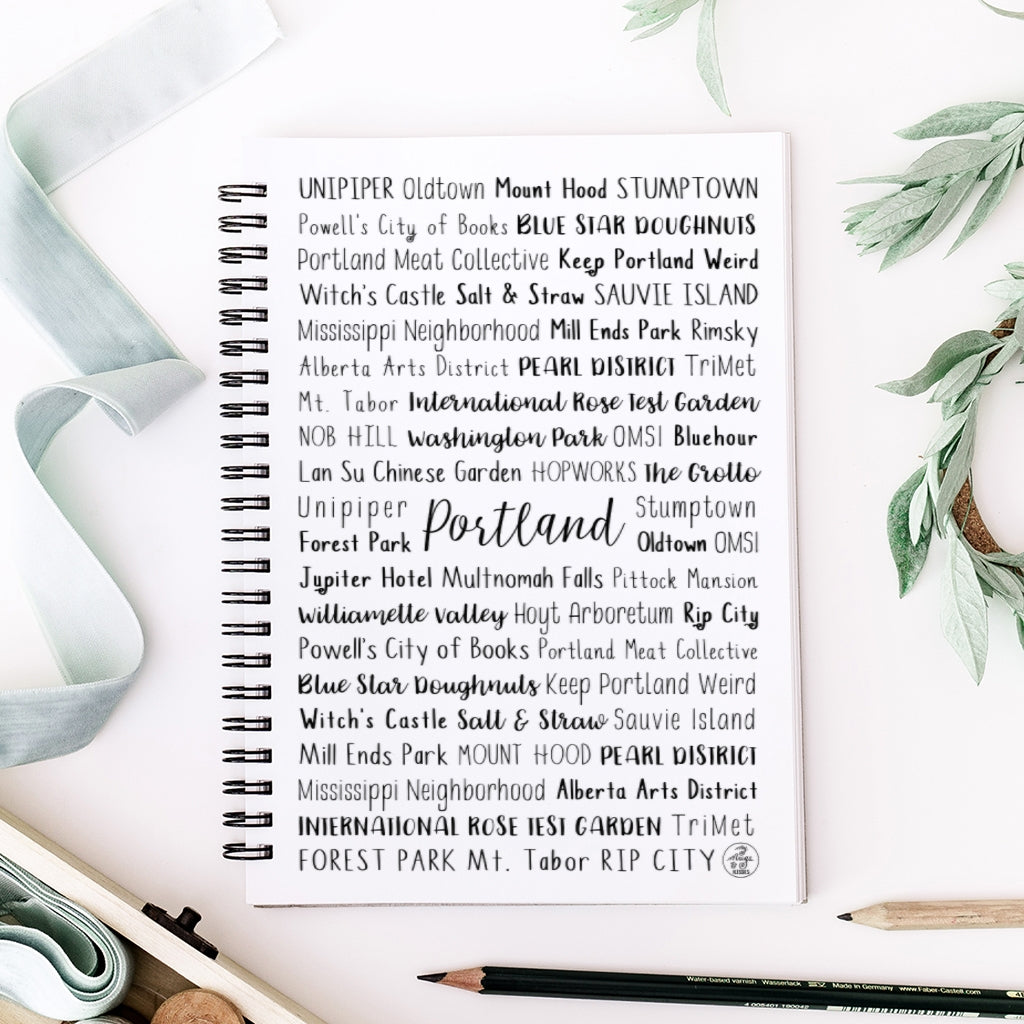 UNIPIPER Oldtown Mount Hood STUMPTOWN
Powell's City of Books BLUE STAR DOUGHNUTS
Portland Meat Collective Keep Portland Weird
Witch's Castle Salt & Straw SAUVIE ISLAND
Mississippi Neighborhood Mill Ends Park Rimsky
Alberta Arts District PEARL DISTRICT TriMet
Mt. Tabor International Rose Test Garden
NOB HILL Washington Park OMSI Bluehour
Lan Su Chinese Garden HOPWORKS The Grotto
Unipiper Portland Stumptown
Forest Park Oldtown OMSI
Jupiter Hotel Multnomah Falls Pittock Mansion
Williamette Valley Hoyt Arboretum Rip City
Powell's City of Books Portland Meat Collective
Blue Star Doughnuts Keep Portland Weird
Witch's Castle Salt & Straw Sauvie Island
Mill Ends Park MOUNT HOOD PEARL DISTRICT
Mississippi Neighborhood Alberta Arts District
INTERNATIONAL ROSE TEST GARDEN TriMet
FOREST PARK Mt. Tabor RIP CITY
Water-based varnish Wasserlack Made in Germany www.Faber-Castell.com
4 005401 190042